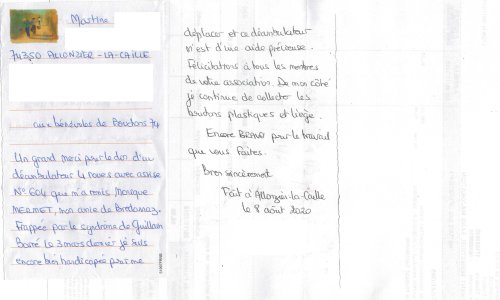 Martine
74350 ALLONZIER-LA-CAILLE
aux bénévoles de Bouchons 74
Un grand merci pour le don d'un
déambulateur 4 roues avec assise
N° 604 que m'a remis Monique
MERMET, mon amie de Bredannaz.
Frappée par le syndrome de Guillain
Barré le 3 mars dernier je suis
encore bien handicapée pour me
déplacer et ce déambulateur
m'est d'une aide précieuse.
Félicitations à tous les membres
de votre association. De mon côté
je continue de collecter les
bouchons plastiques et liège.
Encore BRAVO pour le travail
que vous faites.
Bien sincèrement
Fait à Allonzier-la-Caille
le 8 août 2020